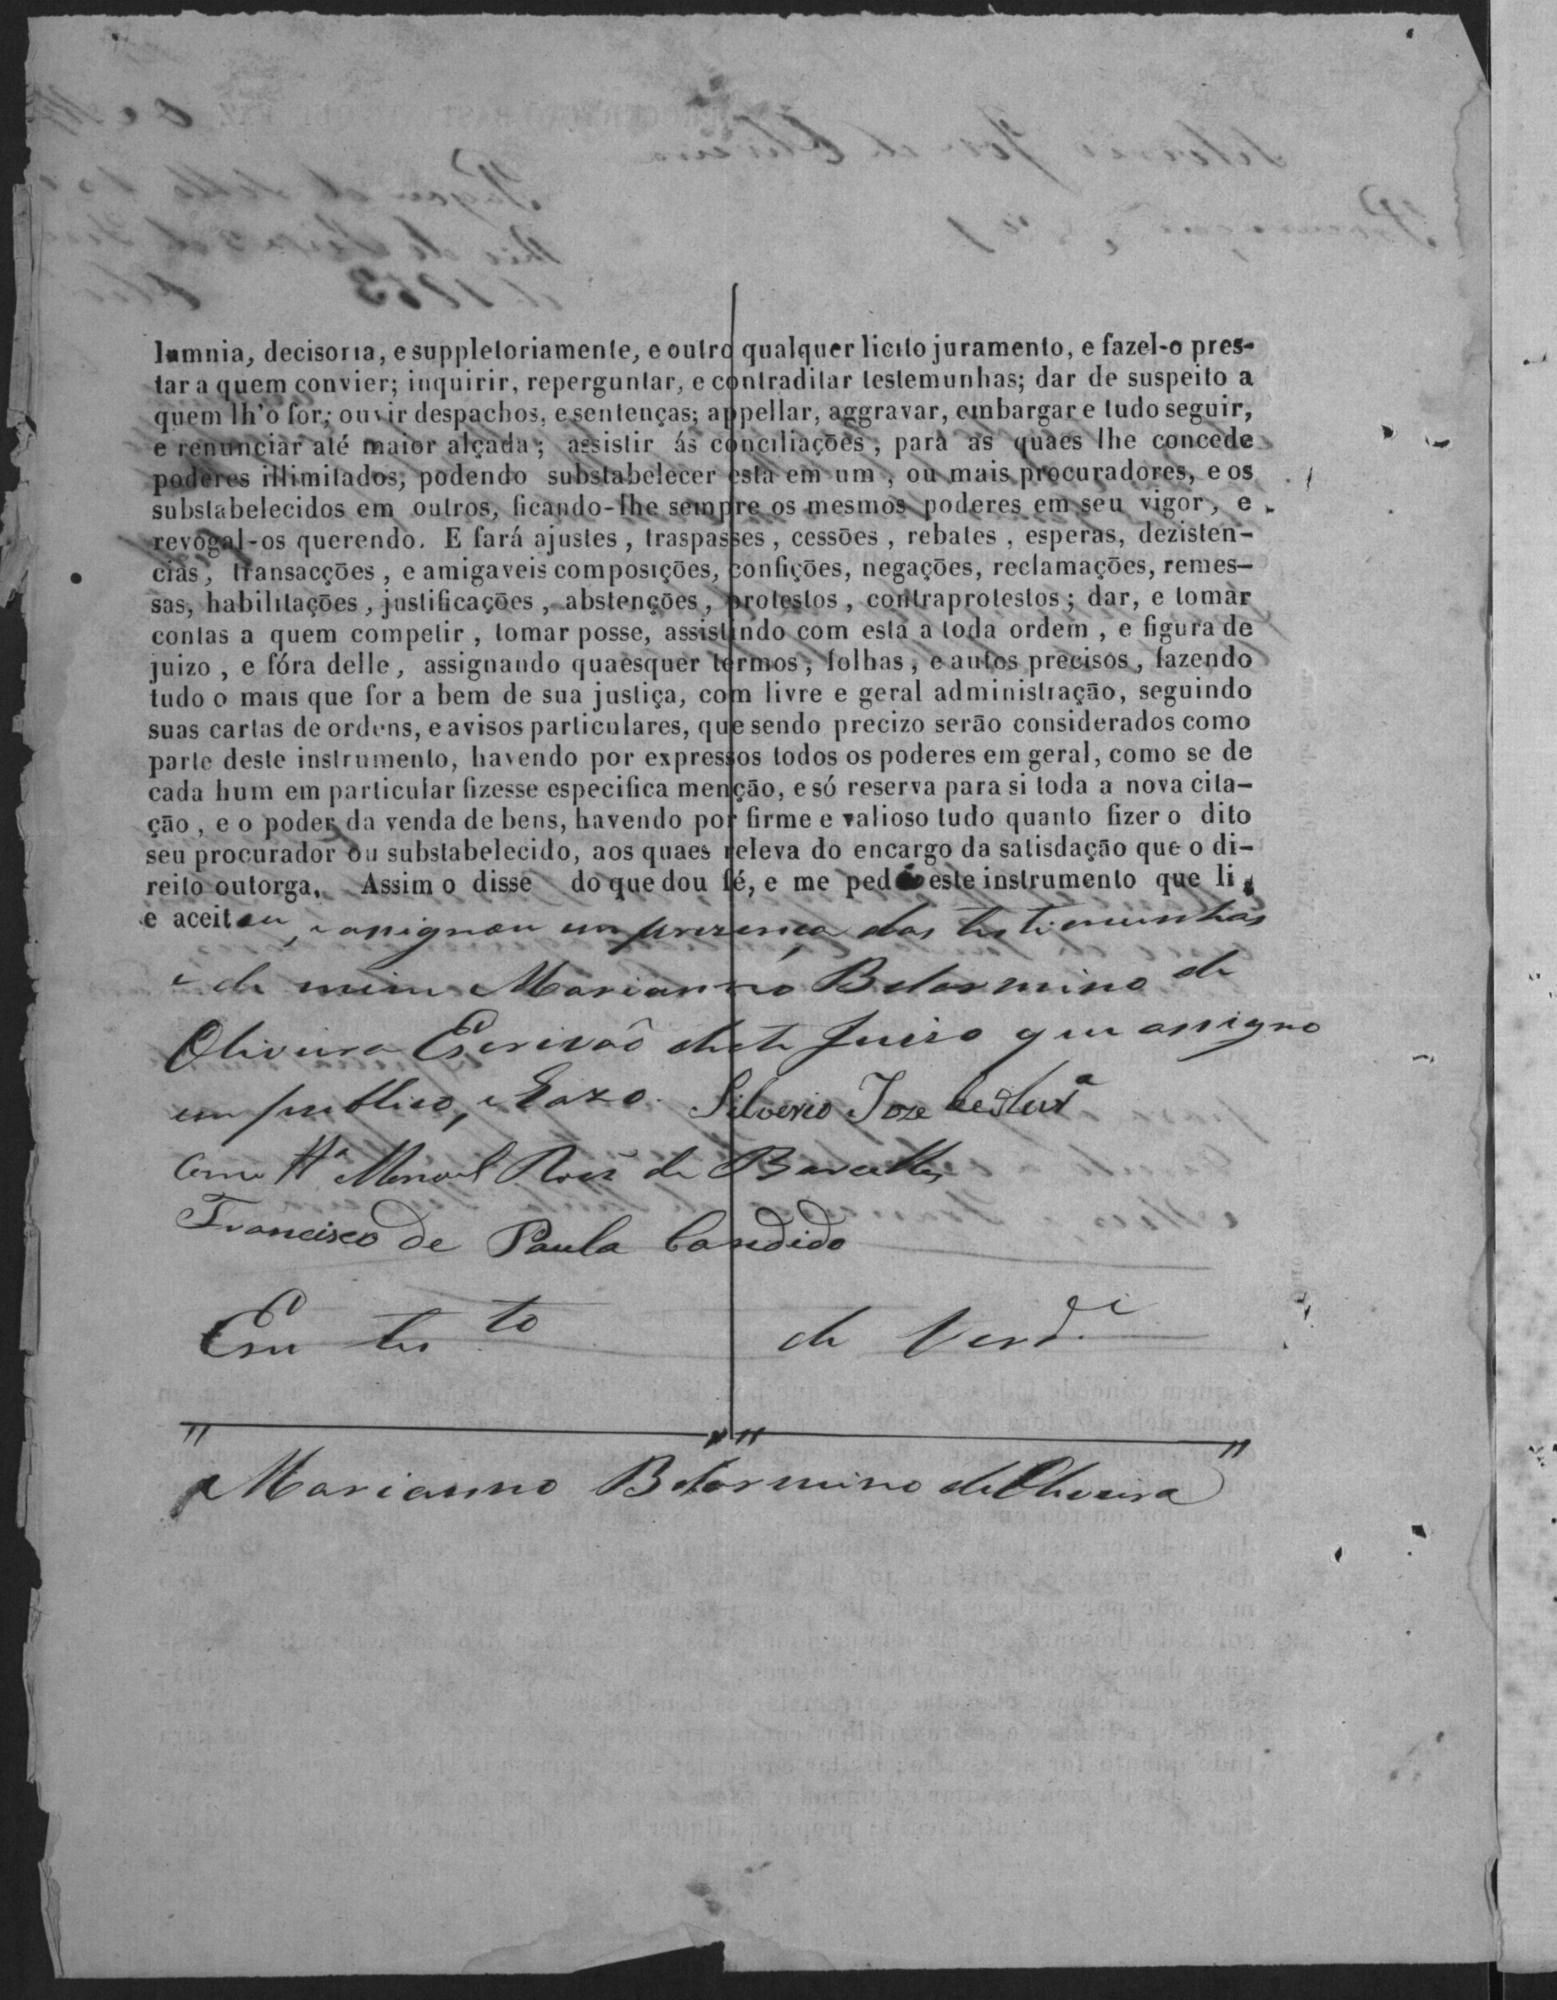 lumnia, decisoria, e suppletoriamente, e outro qualquer licito juramento, e fazel-o pres-
tar a quem convier; inquirir, reperguntar, e contraditar testemunhas; dar de suspeito a
quem lh'o for; ouvir despachos, e sentenças; appellar, aggravar, embargar e tudo seguir,
e renunciar até maior alçada; assistir ás conciliações, para as quaes lhe concede
poderes illimitados, podendo substabelecer esta em um, ou mais procuradores, e os
substabelecidos em outros, ficando-lhe sempre os mesmos poderes em seu vigor, e
revogal-os querendo. E fará ajustes, traspasses, cessões, rebates, esperas, dezisten-
cias, transacções, e amigaveis composições, confições, negações, reclamações, remes-
sas, habilitações, justificações, abstenções, protestos, contraprotestos; dar, e tomar
contas a quem competir, tomar posse, assistindo com esta a toda ordem, e figura de
juizo, e fóra delle, assignando quaesquer termos, folhas, e autos precisos, fazendo
tudo o mais que for a bem de sua justiça, com livre e geral administração, seguindo
suas cartas de ordens, e avisos particulares, que sendo precizo serão considerados como
parte deste instrumento, havendo por expressos todos os poderes em geral, como se de
cada hum em particular fizesse especifica menção, e só reserva para si toda a nova cita-
ção, e o poder da venda de bens, havendo por firme e valioso tudo quanto fizer o dito
seu procurador ou substabelecido, aos quaes releva do encargo da satisdação que o di-
reito outorga. Assim o disse do que dou fé, e me pedio este instrumento que li,
e aceitou, e assignou em prezença das testimunhas
e de mim Marianno Belarmino de
Oliveira Escrivaô deste Juizo que assigno
em publico, e Razo. Silverio Jose de
Como Ta Manoel Roiz de Barcellos
Francisco de Paula Candido
Em testo de Verde
Marianno Belarmino de Oliveira